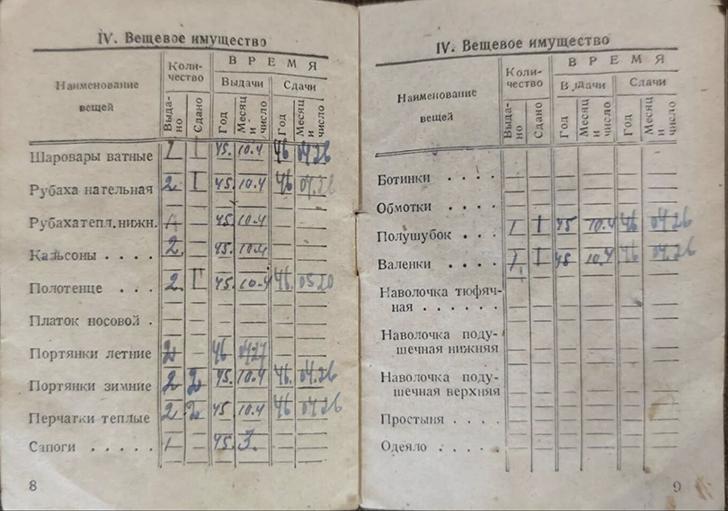 IV. Вещевое имущество
Наименование вещей
Коли-
чество
ВРЕМЯ
Выдачи
Сдачи
Выда-
но
Сдано
Год
Месяц
и
число
Год
Месяц
и
число
Шаровары ватные 1 I 45. 10.4 46 04.26
Рубаха нательная 2. I 45. 10.4 46 04.26
Рубаха тепл. нижн. 45. 10.4
Кальсоны . . . . 2. 45. 10.4
Полотенце . . . 2. 45. 10.4 46. 05.20
Платок носовой .
Портянки летние 2 46 0427
Портянки зимние 2 2 45. 10.4 46. 04.26
Перчатки теплые 2. 2 45 10.4 46 04.26
Сапоги . . . . . 1 45. 3.
8
IV. Вещевое имущество
Наименование
вещей
Коли-
чество
ВРЕМЯ
Выдачи
Сдачи
Выда-
но
Сдано
Год
Месяц
и
число
Год
Месяц
и
число
Ботинки . . . .
Обмотки . . . .
Полушубок . . . 1 1 45 10.4 46 04.26
Валенки . . . . 1 I 45 10.4 46 04.26
Наволочка тюфяч-
ная . . . . . .
Наволочка поду-
шечная нижняя
Наволочка поду-
шечная верхняя
Простыня . . . .
Одеяло . . . . .
9